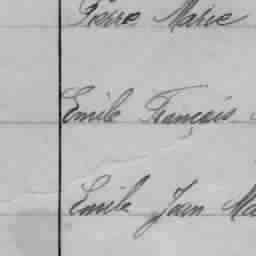 Pierre Marie
Emile François
Emile Jean Ma